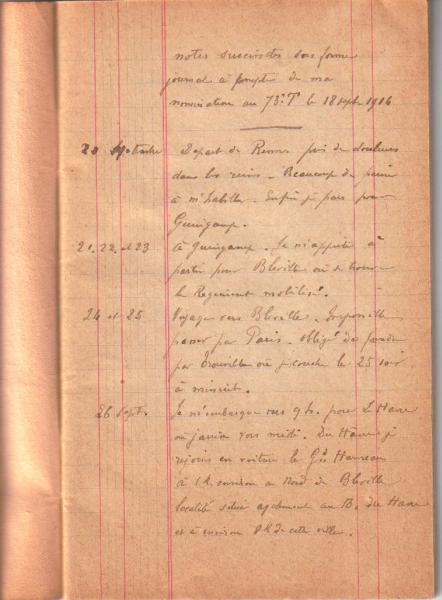 notes succinctes sous forme
journal à compter de ma
nomination au 73e T le 18 sept 1914
20 Septembre Départ de Rennes pris de douleurs
dans les reins - Beaucoup de peine
à m'habiller. Enfin je pars pour
Guingamp.
21, 22, et 23 à Guingamp. Je m'apprête à
partir pour Bléville où se trouve
le Régiment mobilisé.
24 et 25 Voyage vers Bléville. Impossible
passer par Paris. obligé de prendre
par Trouville où je couche le 25 soir
à minuit.
26 Sept. Je m'embarque vers 9h. pour Le Havre
où j'arrive vers midi. Du Havre je
rejoins en voiture le Gd Hameau
à 1 k. environ au Nord de Bléville
localité située également au N. du Havre
et à environ 8 k de cette ville.